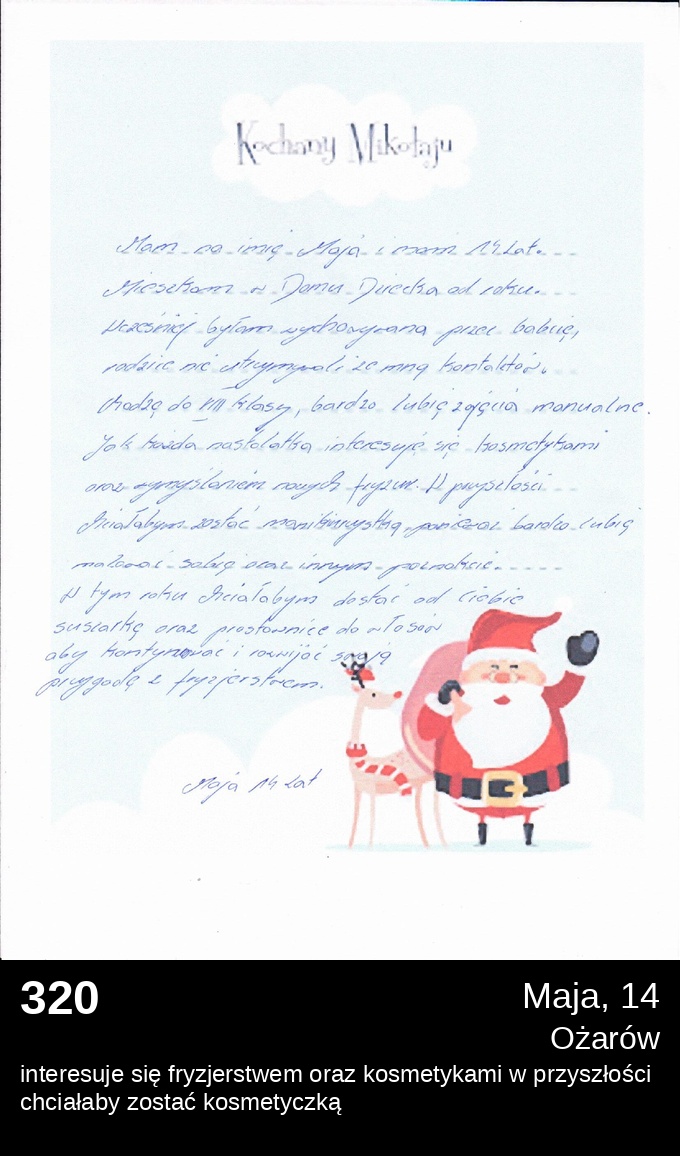 Kochany Mikołaju
Mam na imię Maja i mam 14 lat.
Mieszkam w Domu Dziecka od roku.
Wcześniej byłam wychowywana przez babcię,
rodzice nie utrzymywali ze mną kontaktów.
Chodzę do VIII klasy, bardzo lubię zajęcia manualne.
Jak każda nastolatka interesuję się kosmetykami
oraz wymyślaniem nowych fryzur. W przyszłości
chciałabym zostać manikiurzystką, ponieważ bardzo lubię
malować sobie oraz innym paznokcie.
W tym roku chciałabym dostać od Ciebie
suszarkę oraz prostownice do włosów
aby kontynuować i rozwijać swoją
przygodę z fryzjerstwem.
Maja 14 lat
320
Maja, 14
Ożarów
interesuje się fryzjerstwem oraz kosmetykami w przyszłości
chciałaby zostać kosmetyczką